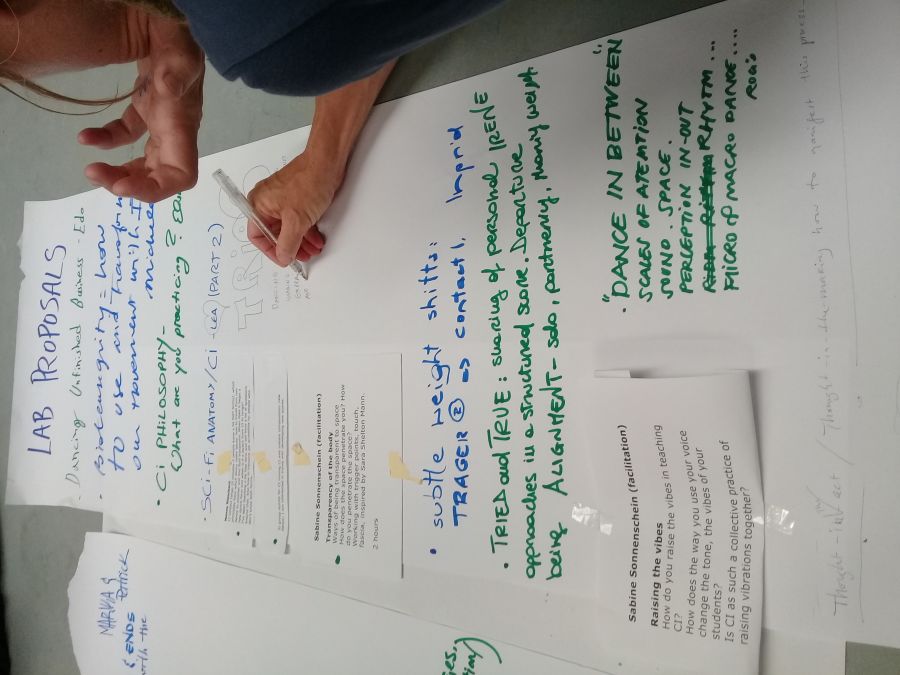 LAB PROPOSALS
- Dancing Unfinished Business - Edo
• Biotensegrity - how
to use and transform
our movement with I
• CI PHILOSOPHY -
What are you practicing?
• SCI-FI ANATOMY/CI - LEA (PART 2)
TRIOS
Sabine Sonnenschein (facilitation)
Transparency of the body
Ways of being transparent to space
How does the space penetrate you? How
do you penetrate the space?
Working with trigger points, touch,
fascia, inspired by Sara Shelton Mann.
2 hours
• subtle weight shifts:
TRAGER ② => contact. Ingrid
• TRIED and TRUE: sharing of personal IRENE
approaches in a structured score. Departure
being ALIGNMENT - solo, partnering, sharing weight
• "DANCE IN BETWEEN"
SCALES OF ATENTION
SOUND. SPACE.
PERCEPTION IN-OUT
RHYTHM...
MICRO & MACRO DANCE....
Sabine Sonnenschein (facilitation)
Raising the vibes
How do you raise the vibes in teaching
CI?
How does the way you use your voice
change the tone, the vibes of your
students?
Is CI as such a collective practice of
raising vibrations together?
Thought - in act / Thought-in-the-making how to manifest this process
MARIA &
PATRICK
& ENDS
with the